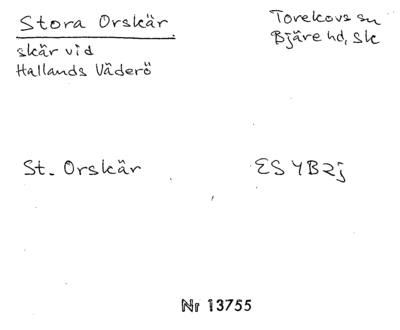 Stora Orskär
Torekovs sn
Bjäre hd, Sk
skär vid
Hallands Väderö
St. Orskär
ES 4B2j
Nr 13755